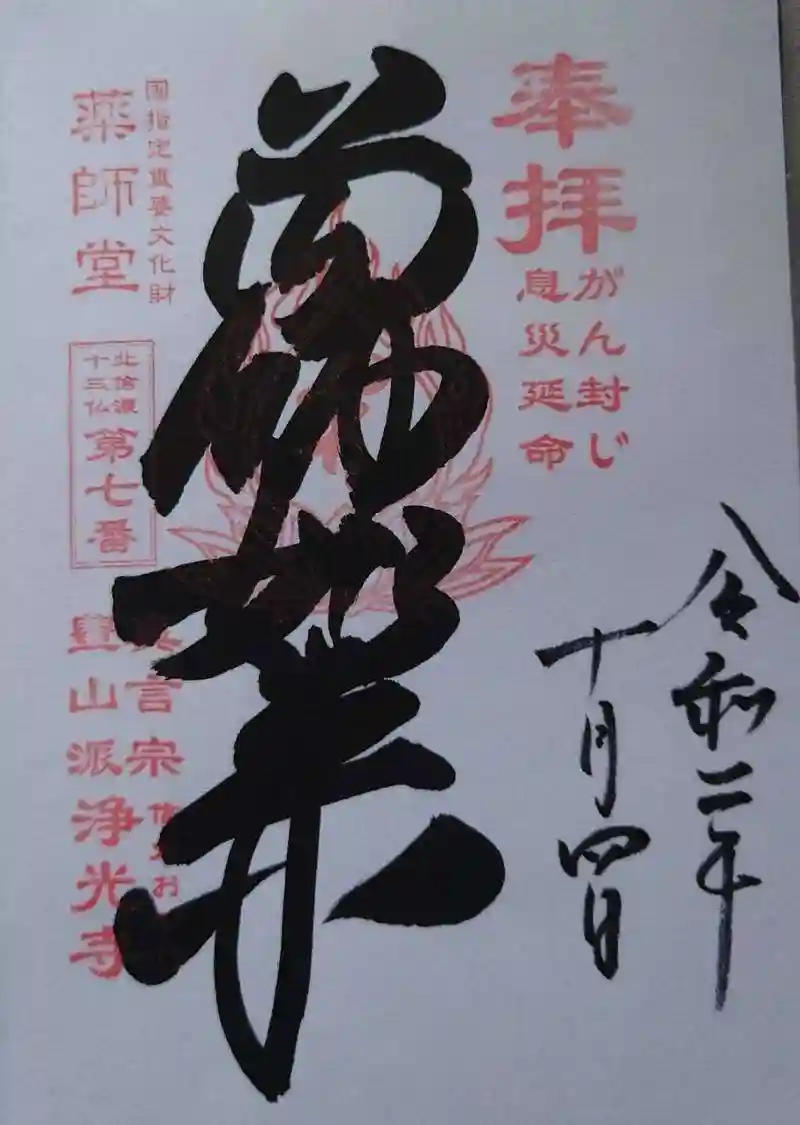 令和二年
十月四日
奉拝
がん封じ
息災延命
薬師如来
国指定重要文化財
薬師堂
北信濃
十三仏
第七番
真言宗
豊山派
浄光寺